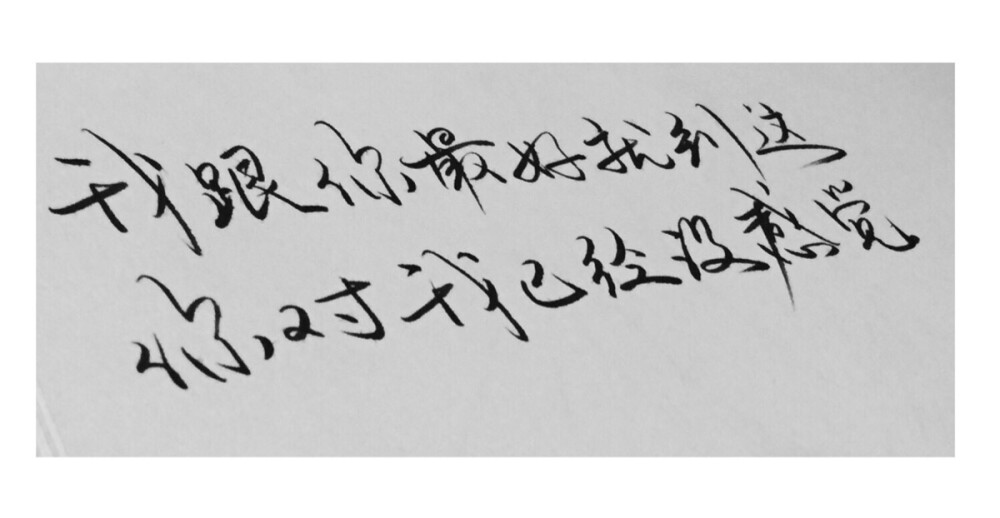 我跟你最好就到这
你对我已经没感觉